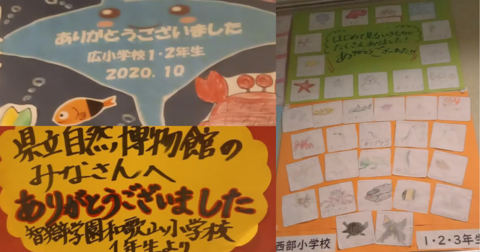 ありがとうございました
広小学校1・2年生
2020.10
県立自然博物館の
みなさんへ
ありがとうございました
智辯学園和歌山小学校
1年生より
はじめて見るいきものが
たくさんありました!
ありがとうございました!!
西部小学校
1・2・3年生